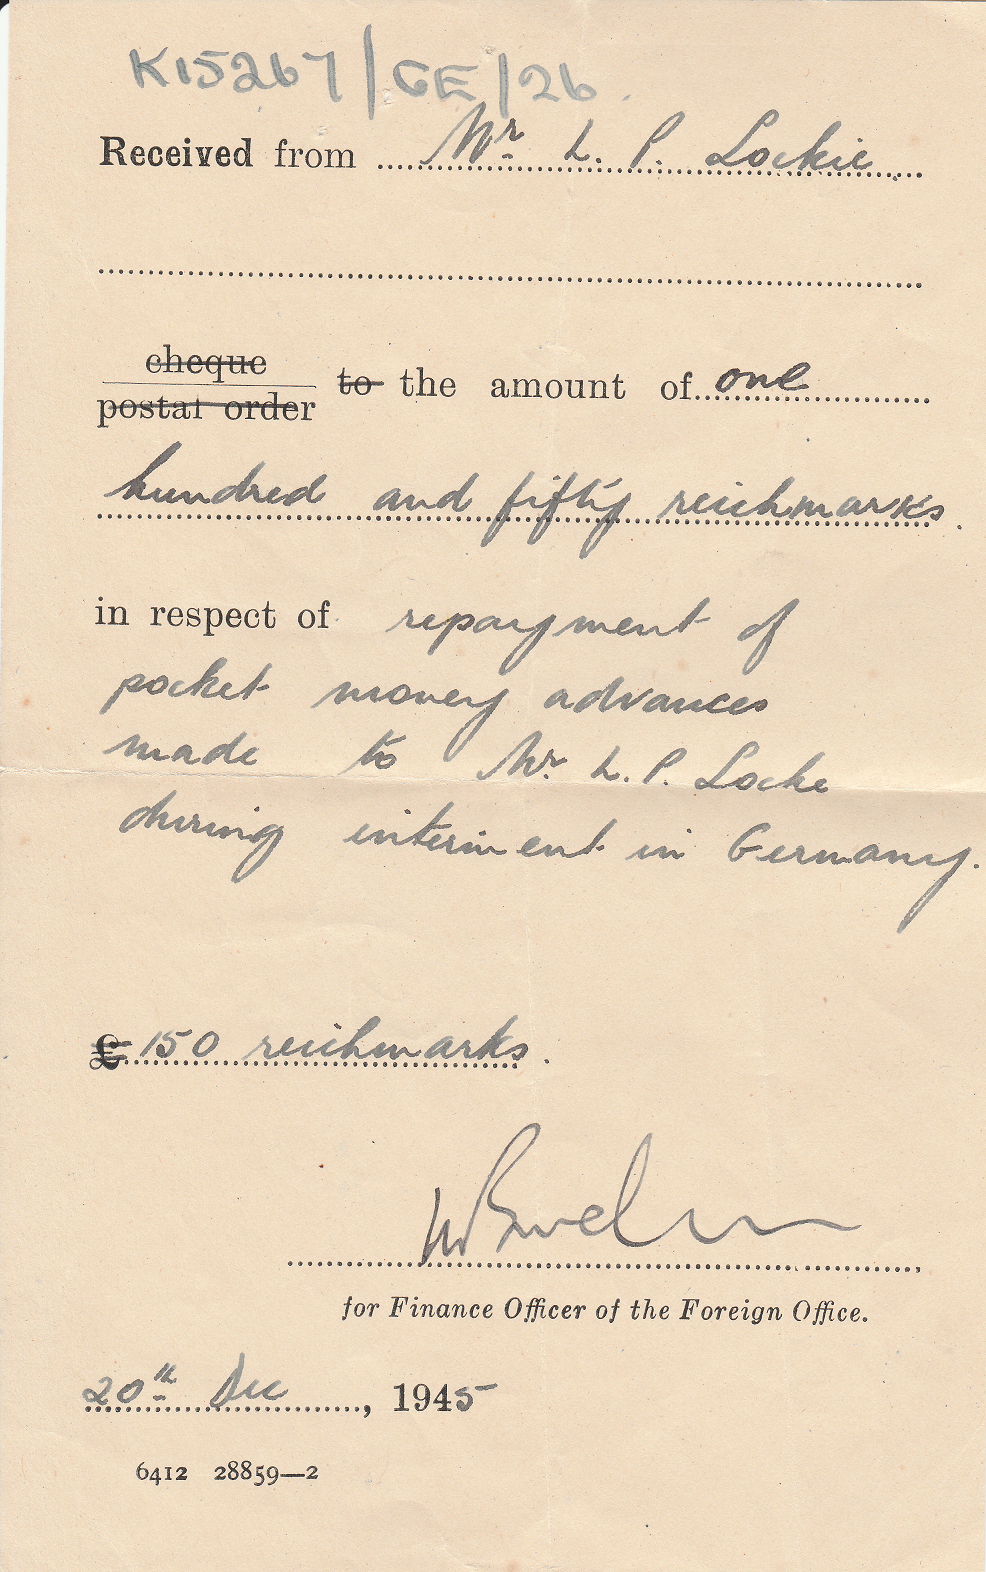 K15267/GE/26.
Received from Mr L. P. Lockie
cheque
postal order to the amount of one
hundred and fifty reichmarks.
in respect of repayment of
pocket money advances
made to Mr. L. P. Locke
during interment in Germany.
£ 150 reichmarks.
for Finance Officer of the Foreign Office.
20th Dec, 1945
6412 28859—2